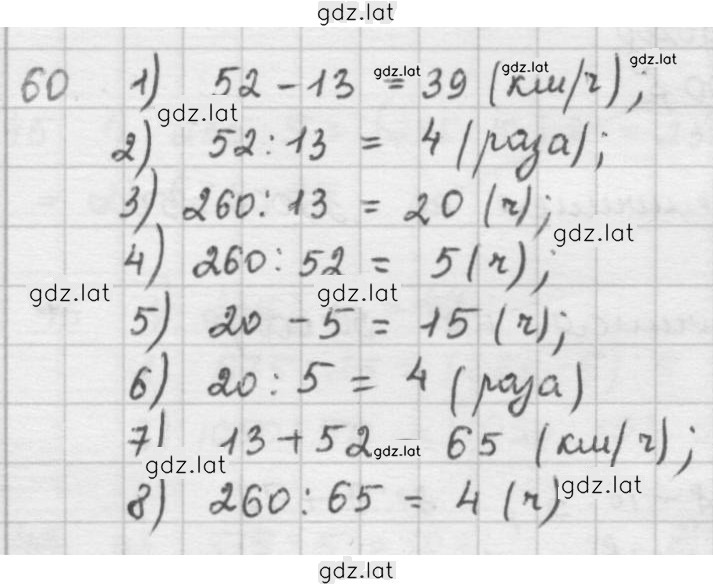 gdz.lat
60. 1) 52 - 13 = 39 (км/ч);
gdz.lat gdz.lat gdz.lat
gdz.lat
2) 52 : 13 = 4 (раза);
3) 260 : 13 = 20 (ч);
gdz.lat
4) 260 : 52 = 5 (ч);
gdz.lat gdz.lat
5) 20 - 5 = 15 (ч);
6) 20 : 5 = 4 (раза)
7) 13 + 52 65 (км/ч);
gdz.lat gdz.lat
8) 260 : 65 = 4 (ч)
gdz.lat
gdz.lat